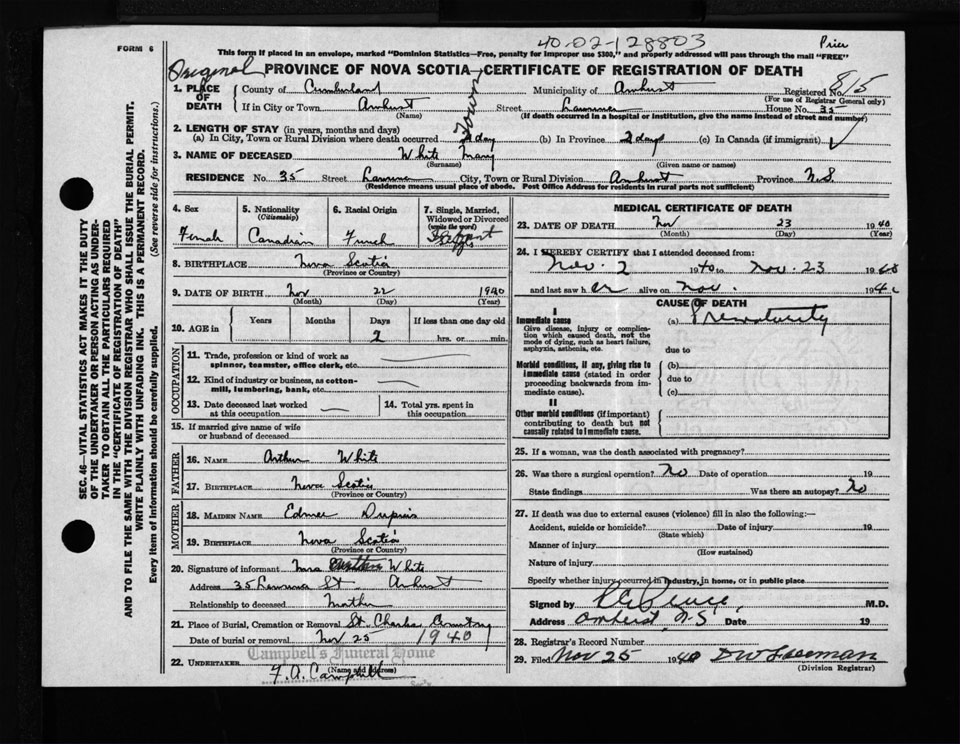 FORM 6
40-02-128803
Price
This form if placed in an envelope, marked "Dominion Statistics—Free, penalty for improper use $300," and properly addressed will pass through the mail "FREE"
Original
PROVINCE OF NOVA SCOTIA—CERTIFICATE OF REGISTRATION OF DEATH
1. PLACE OF DEATH
County of Cumberland Municipality of Amherst Registered No. 815
(For use of Registrar General only)
If in City or Town Amherst Street House No. 35
(Name) (If death occurred in a hospital or institution, give the name instead of street and number)
Town
2. LENGTH OF STAY (in years, months and days)
(a) In City, Town or Rural Division where death occurred 2 day (b) In Province 2 days (c) In Canada (if immigrant)
3. NAME OF DECEASED White Mary
(Surname) (Given name or names)
RESIDENCE No. 35 Street City, Town or Rural Division Amherst Province N.S.
(Residence means usual place of abode. Post Office Address for residents in rural parts not sufficient)
4. Sex
Female
5. Nationality
(Citizenship)
Canadian
6. Racial Origin
French
7. Single, Married,
Widowed or Divorced
(write the word)
8. BIRTHPLACE Nova Scotia
(Province or Country)
9. DATE OF BIRTH Nov 22 1940
(Month) (Day) (Year)
10. AGE in Years Months Days If less than one day old
2 hrs. or min.
OCCUPATION
11. Trade, profession or kind of work as
spinner, teamster, office clerk, etc.
12. Kind of industry or business, as cotton-
mill, lumbering, bank, etc.
13. Date deceased last worked
at this occupation
14. Total yrs. spent in
this occupation
15. If married give name of wife
or husband of deceased
FATHER
16. NAME Arthur White
17. BIRTHPLACE Nova Scotia
(Province or Country)
MOTHER
18. MAIDEN NAME Edmee Dupuis
19. BIRTHPLACE Nova Scotia
(Province or Country)
20. Signature of informant Mrs Arthur White
Address 35 St Amherst
Relationship to deceased Mother
21. Place of Burial, Cremation or Removal St. Charles Cemetery
Date of burial or removal Nov 25 1940
Campbell's Funeral Home
22. UNDERTAKER F. A. Campbell
(Name and Address)
MEDICAL CERTIFICATE OF DEATH
23. DATE OF DEATH Nov 23 1940
(Month) (Day) (Year)
24. I HEREBY CERTIFY that I attended deceased from:
Nov. 2 1940 to Nov. 23 1940
and last saw her alive on Nov. 194
CAUSE OF DEATH
I
Immediate cause
Give disease, injury or complica-
tion which caused death, not the
mode of dying, such as heart failure,
asphyxia, asthenia, etc.
(a) Prematurity
due to
Morbid conditions, if any, giving rise to
immediate cause (stated in order
proceeding backwards from im-
mediate cause).
(b)
due to
(c)
II
Other morbid conditions (if important)
contributing to death but not
causally related to immediate cause.
25. If a woman, was the death associated with pregnancy?
26. Was there a surgical operation? No Date of operation 19
State findings Was there an autopsy? No
27. If death was due to external causes (violence) fill in also the following:—
Accident, suicide or homicide? Date of injury 19
(State which)
Manner of injury
(How sustained)
Nature of injury
Specify whether injury occurred in industry, in home, or in public place
Signed by M.D.
Address Amherst, N.S. Date 19
28. Registrar's Record Number
29. Filed Nov 25 1940
(Division Registrar)
SEC. 46—VITAL STATISTICS ACT MAKES IT THE DUTY
OF THE UNDERTAKER OR PERSON ACTING AS UNDER-
TAKER TO OBTAIN ALL THE PARTICULARS REQUIRED
IN THE "CERTIFICATE OF REGISTRATION OF DEATH"
AND TO FILE THE SAME WITH THE DIVISION REGISTRAR WHO SHALL ISSUE THE BURIAL PERMIT.
WRITE PLAINLY WITH UNFADING INK. THIS IS A PERMANENT RECORD.
Every item of information should be carefully supplied.
(See reverse side for instructions.)